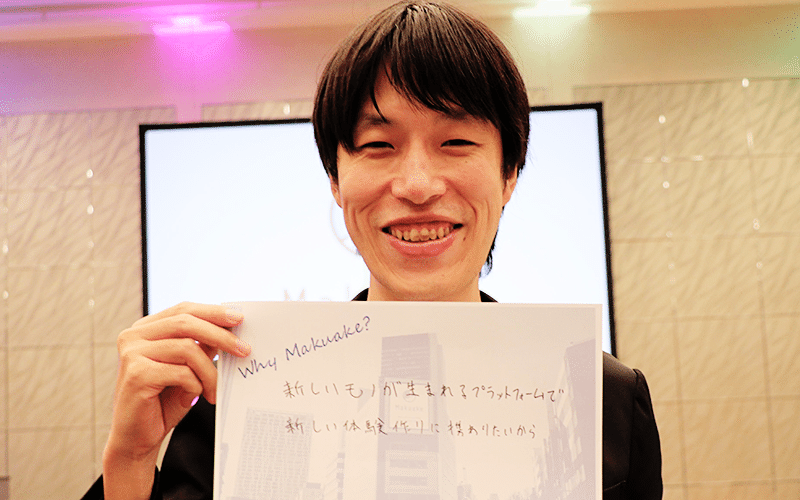 Why Makuake?
新しいモノが生まれるプラットフォームで
新しい体験作りに携わりたいから